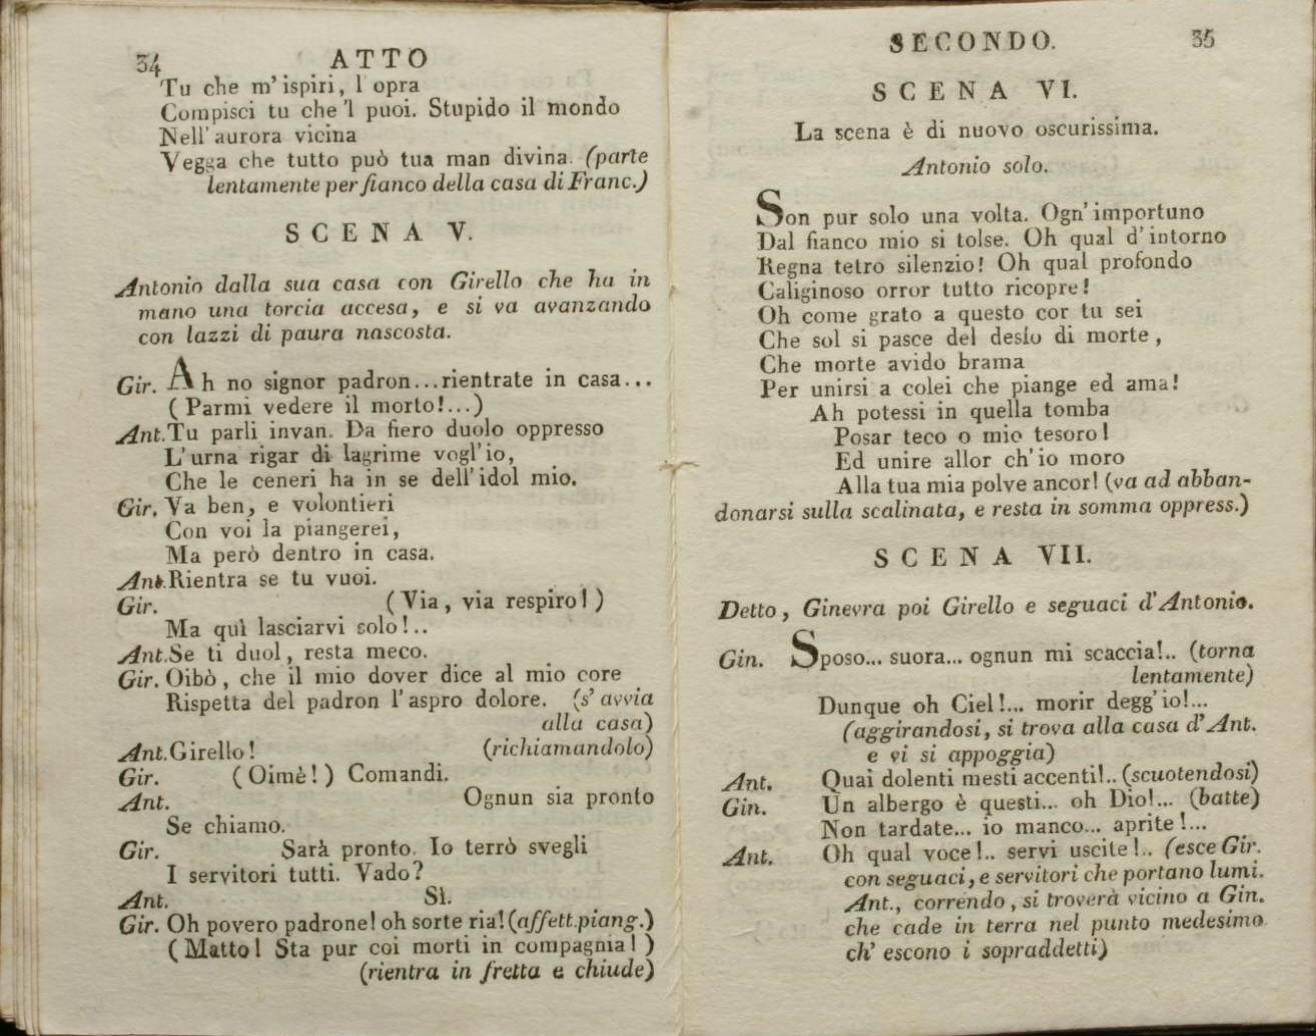 34 ATTO
Tu che m'ispiri, l opra
Compisci tu che 'l puoi. Stupido il mondo
Nell' aurora vicina
Vegga che tutto può tua man divina. (parte
lentamente per fianco della casa di Franc.)
SCENA V.
Antonio dalla sua casa con Girello che ha in
mano una torcia accesa, e si va avanzando
con lazzi di paura nascosta.
Gir. Ah no signor padron...rientrate in casa...
(Parmi vedere il morto!...)
Ant. Tu parli invan. Da fiero duolo oppresso
L'urna rigar di lagrime vogl'io,
Che le ceneri ha in se dell'idol mio.
Gir. Va ben, e volontieri
Con voi la piangerei,
Ma però dentro in casa.
Ant. Rientra se tu vuoi.
Gir. (Via, via respiro!)
Ma quì lasciarvi solo!..
Ant. Se ti duol, resta meco.
Gir. Oibò, che il mio dover dice al mio core
Rispetta del padron l'aspro dolore. (s'avvia
alla casa)
Ant. Girello! (richiamandolo)
Gir. (Oimè!) Comandi.
Ant. Ognun sia pronto
Se chiamo.
Gir. Sarà pronto. Io terrò svegli
I servitori tutti. Vado?
Ant. Sì.
Gir. Oh povero padrone! oh sorte ria! (affett.piang.)
(Matto! Sta pur coi morti in compagnia!)
(rientra in fretta e chiude)
SECONDO. 35
SCENA VI.
La scena è di nuovo oscurissima.
Antonio solo.
Son pur solo una volta. Ogn'importuno
Dal fianco mio si tolse. Oh qual d'intorno
Regna tetro silenzio! Oh qual profondo
Caliginoso orror tutto ricopre!
Oh come grato a questo cor tu sei
Che sol si pasce del desìo di morte,
Che morte avido brama
Per unirsi a colei che piange ed ama!
Ah potessi in quella tomba
Posar teco o mio tesoro!
Ed unire allor ch'io moro
Alla tua mia polve ancor! (va ad abban-
donarsi sulla scalinata, e resta in somma oppress.)
SCENA VII.
Detto, Ginevra poi Girello e seguaci d'Antonio.
Gin. Sposo... suora... ognun mi scaccia!.. (torna
lentamente)
Dunque oh Ciel!... morir degg'io!...
(aggirandosi, si trova alla casa d'Ant.
e vi si appoggia)
Ant. Quai dolenti mesti accenti!.. (scuotendosi)
Gin. Un albergo è questi... oh Dio!... (batte)
Non tardate... io manco... aprite!...
Ant. Oh qual voce!.. servi uscite!.. (esce Gir.
con seguaci, e servitori che portano lumi.
Ant., correndo, si troverà vicino a Gin.
che cade in terra nel punto medesimo
ch' escono i sopraddetti)